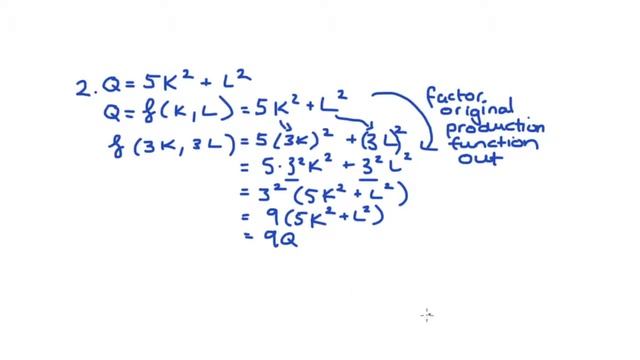 2. Q = 5K² + L²
Q = f(K, L) = 5K² + L²
f(3K, 3L) = 5(3K)² + (3L)²
= 5·3²K² + 3²L²
= 3²(5K² + L²)
= 9(5K² + L²)
= 9Q
factor
original
production
function
out